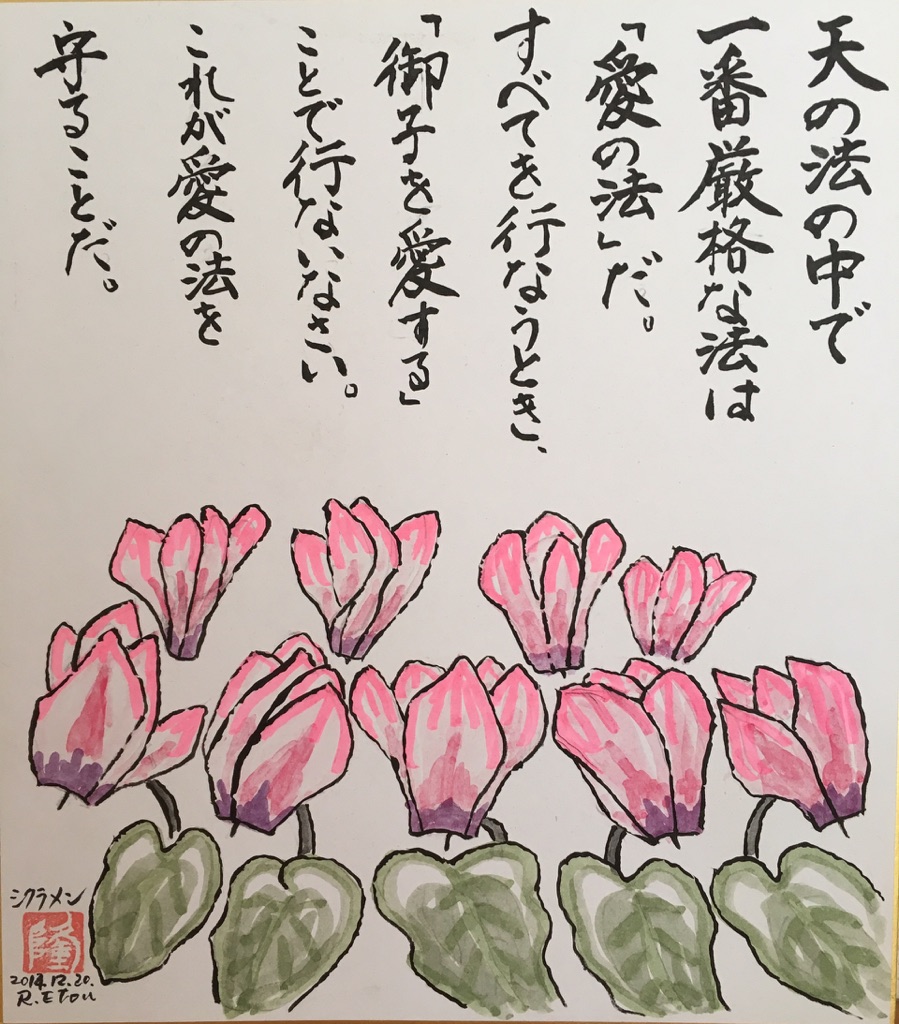 天の法の中で
一番厳格な法は
「愛の法」だ。
すべてを行なうとき、
「御子を愛する」
ことで行ないなさい。
これが愛の法を
守ることだ。
シクラメン
隆
2014.12.20.
R.Etou